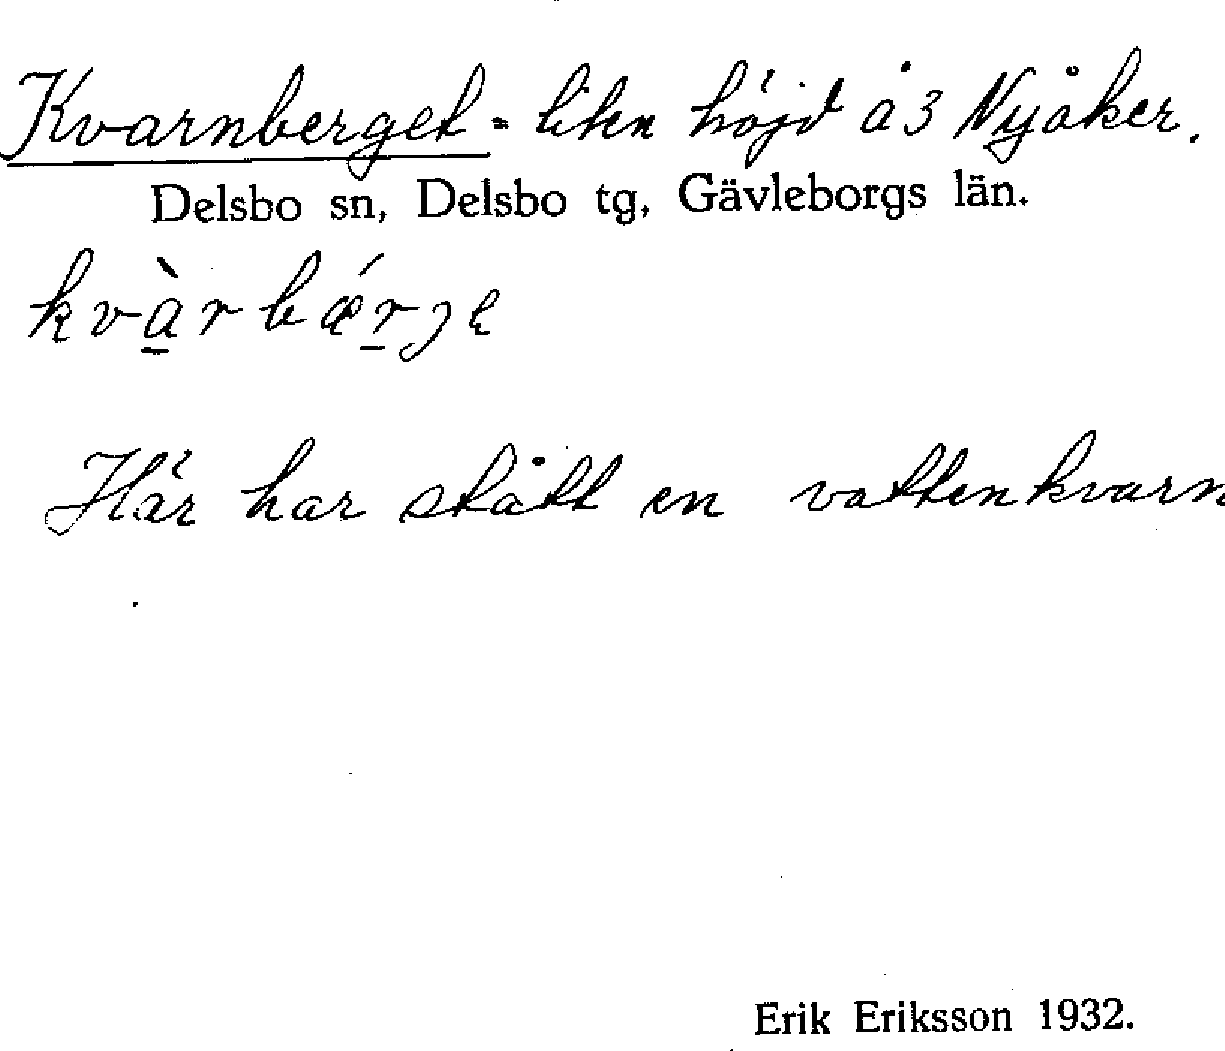 Kvarnberget - liten höjd å 3 Nyåker.
Delsbo sn, Delsbo tg, Gävleborgs län.
kvà̱rbǽṟȷe
Här har stått en vattenkvarn
Erik Eriksson 1932.